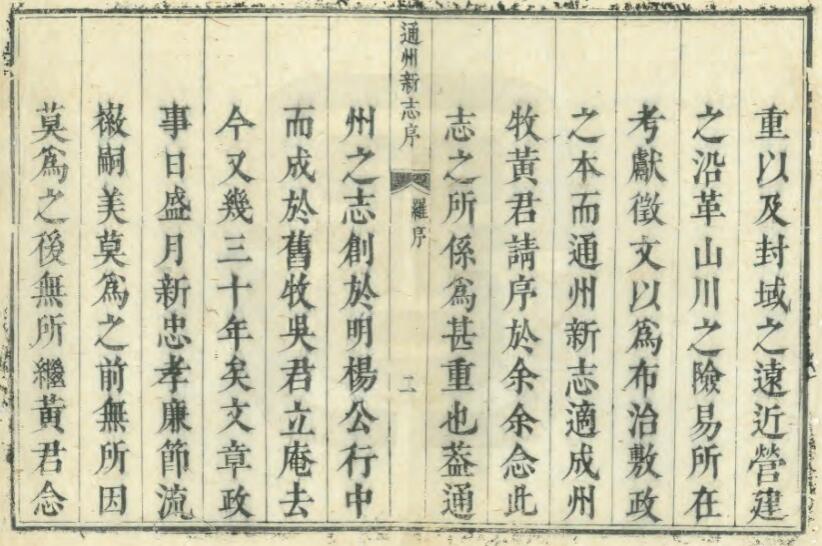 重以及封域之遠近營建
之沿革山川之險易所在
考獻徵文以爲布治敷政
之本而通州新志適成州
牧黃君請序於余余念此
志之所係爲甚重也葢通
通州新志序 羅序 二
州之志創於明楊公行中
而成於舊牧吳君立庵去
今又幾三十年矣文章政
事日盛月新忠孝廉節流
徽嗣美莫爲之前無所因
莫爲之後無所繼黃君念